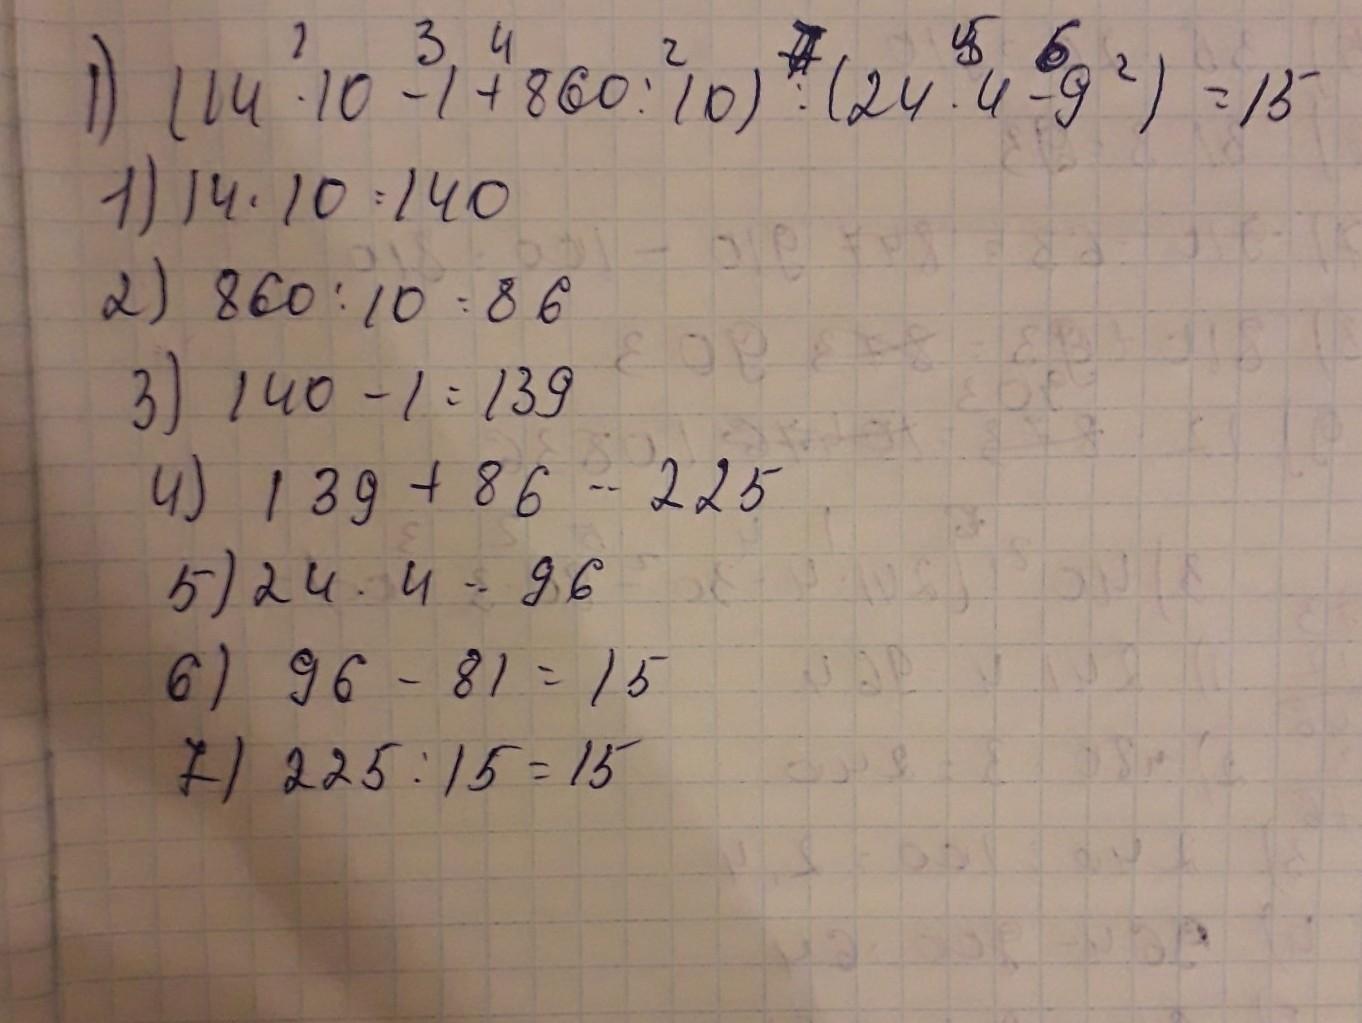 1) (14 · 10 - 1 + 860 : 10) : (24 · 4 - 9²) = 15
1) 14 · 10 = 140
2) 860 : 10 = 86
3) 140 - 1 = 139
4) 139 + 86 = 225
5) 24 · 4 = 96
6) 96 - 81 = 15
7) 225 : 15 = 15